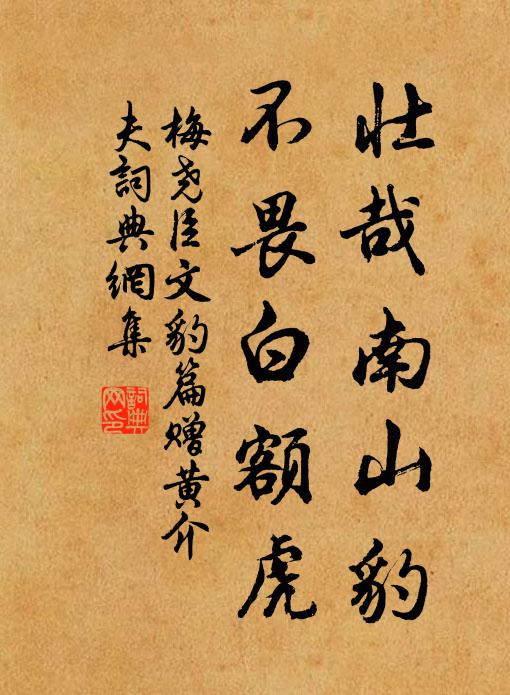 壮哉南山豹
不畏白额虎
梅尧臣文豹篇赠黄介
夫詞典網集
詞典
网印